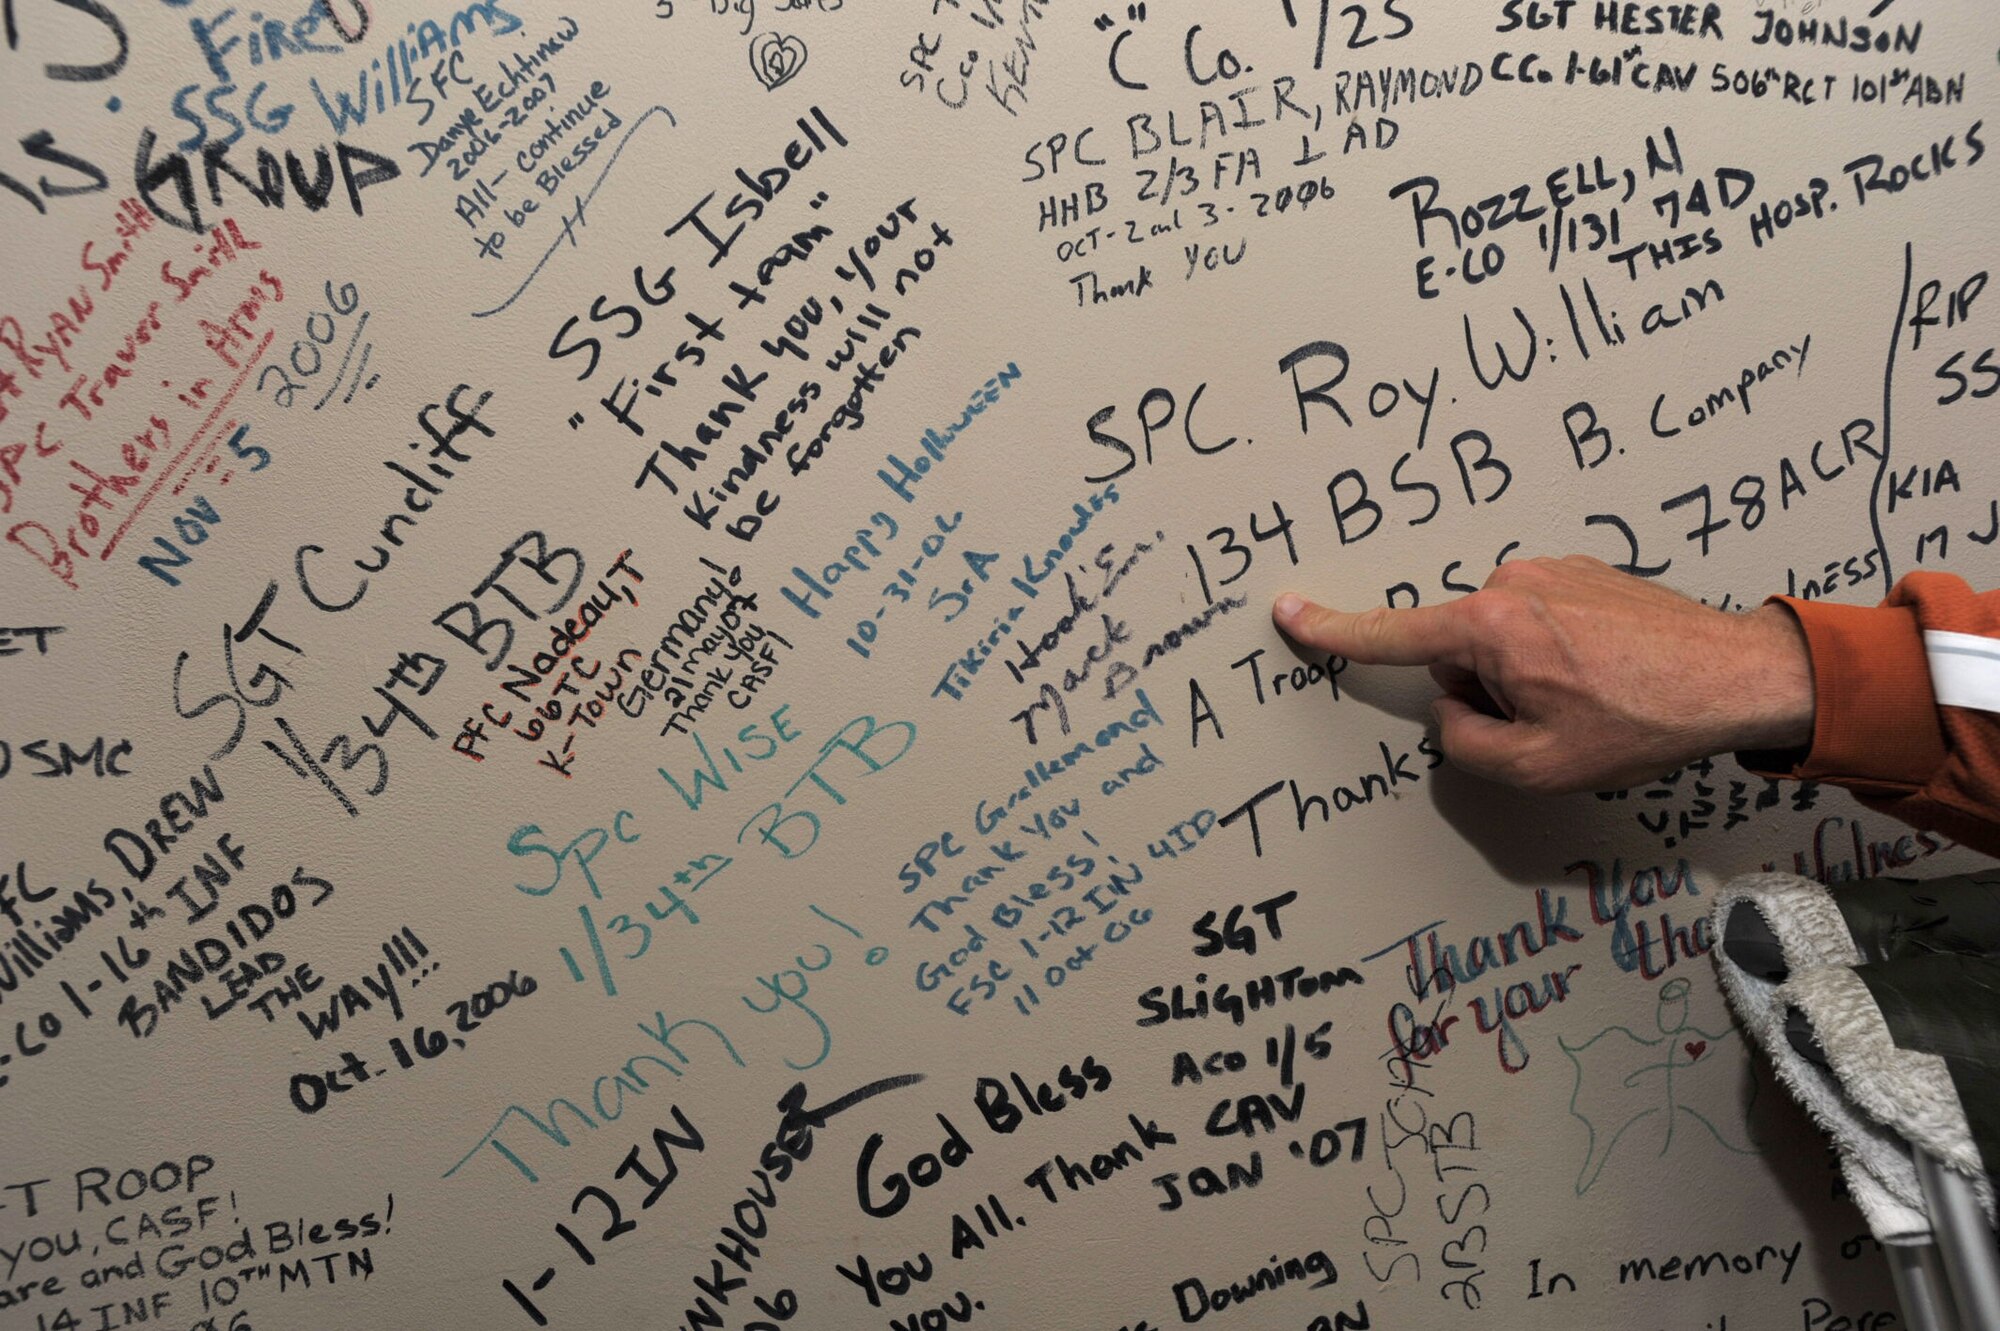 Fire
SSG Williams
GROUP
SFC
Danye Echtinaw
2006-2007
All- Continue
to be Blessed
SPC
CCo
"C" Co. 1/25
SGT HESTER JOHNSON
CCo 1-61st CAV 506th RCT 101st ABN
SPC BLAIR, RAYMOND
HHB 2/3 FA 1 AD
OCT-2 3-2006
Thank YOU
ROZZELL, N
E-CO 1/131 74D
THIS HOSP. ROCKS
RYAN Smith
SPC Travor Smith
Brothers in Arms
Nov 5 2006
SSG Isbell
"First team"
Thank you, your
kindness will not
be forgotten
SGT Cuncliff
1/34th BTB
PFC Nadeau, T
66TC
K-Town
Germany!
21may07
Thank you
CASF!
Happy Holloween
10-31-06
JrA
Tikiria Knowles
Hook'Em.
Mack
Brown
SPC. Roy. William
134 BSB B. Company
278ACR
A Troop
Thanks
RIP
SS
KIA
17 J
SMC
Williams, DREW
Co 1-16th INF
BANDIDOS
LEAD
THE
WAY!!!
Oct. 16, 2006
SPC WISE
1/34th BTB
Thank you!
SPC Grallemond
Thank You and
God Bless!
FSC 1-12 IN 4ID
11 Oct 06
SGT
SLIGHTom
Aco 1/5
CAV
JAN '07
Thank You
for your
God Bless
You All. Thank
You.
1-12 IN
T ROOP
you, CASF!
and God Bless!
14 INF 10TH MTN
SPC JONES
2BSTB
Downing
In memory